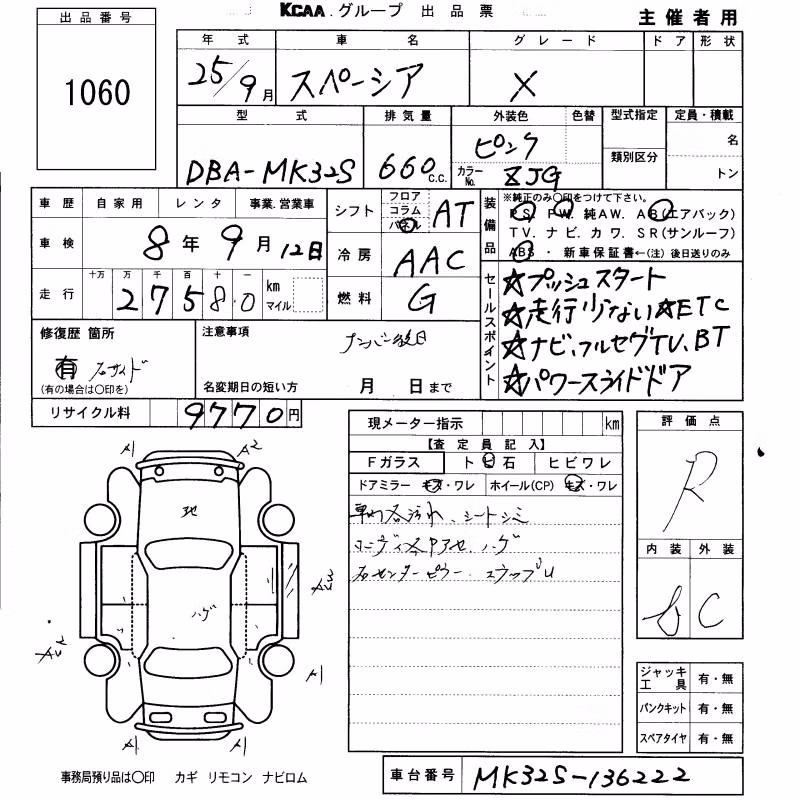 KCAA.グループ 出品票
主催者用
出品番号
1060
年式 車名 グレード ドア 形状
25/9月 スペーシア X
型式 排気量 外装色 色替 型式指定 定員・積載
DBA-MK32S 660c.c. ピンク
カラーNo. ZJG
類別区分
名
トン
車歴 自家用 レンタ 事業.営業車
車検 8年9月12日
走行 十万 万 千 百 十 一
27580 km マイル
シフト フロア コラム パネル AT
冷房 AAC
燃料 G
装備品
※純正のみ○印をつけて下さい。
PS, PW, 純AW. AB(エアバック)
TV. ナビ. カワ. SR(サンルーフ)
ABS ・ 新車保証書←(注)後日送りのみ
セールスポイント
☆プッシュスタート
☆走行少ない☆ETC
☆ナビ、フルセグTV、BT
☆パワースライドドア
修復歴 箇所
有 右サイド
(有の場合は○印を)
注意事項
ナンバー後日
名変期日の短い方 月 日まで
リサイクル料 9770円
現メーター指示 km
【査定員記入】
Fガラス ト日石 ヒビワレ
ドアミラー キズ・ワレ ホイール(CP) キズ・ワレ
車内汚れ、シートシミ
ハゲ
右センターピラー
評価点
R
内装 外装
C
A1 A2
地
ハゲ
A1
A1 A1
ジャッキ工具 有・無
パンクキット 有・無
スペアタイヤ 有・無
事務局預り品は○印 カギ リモコン ナビロム
車台番号 MK32S-136222